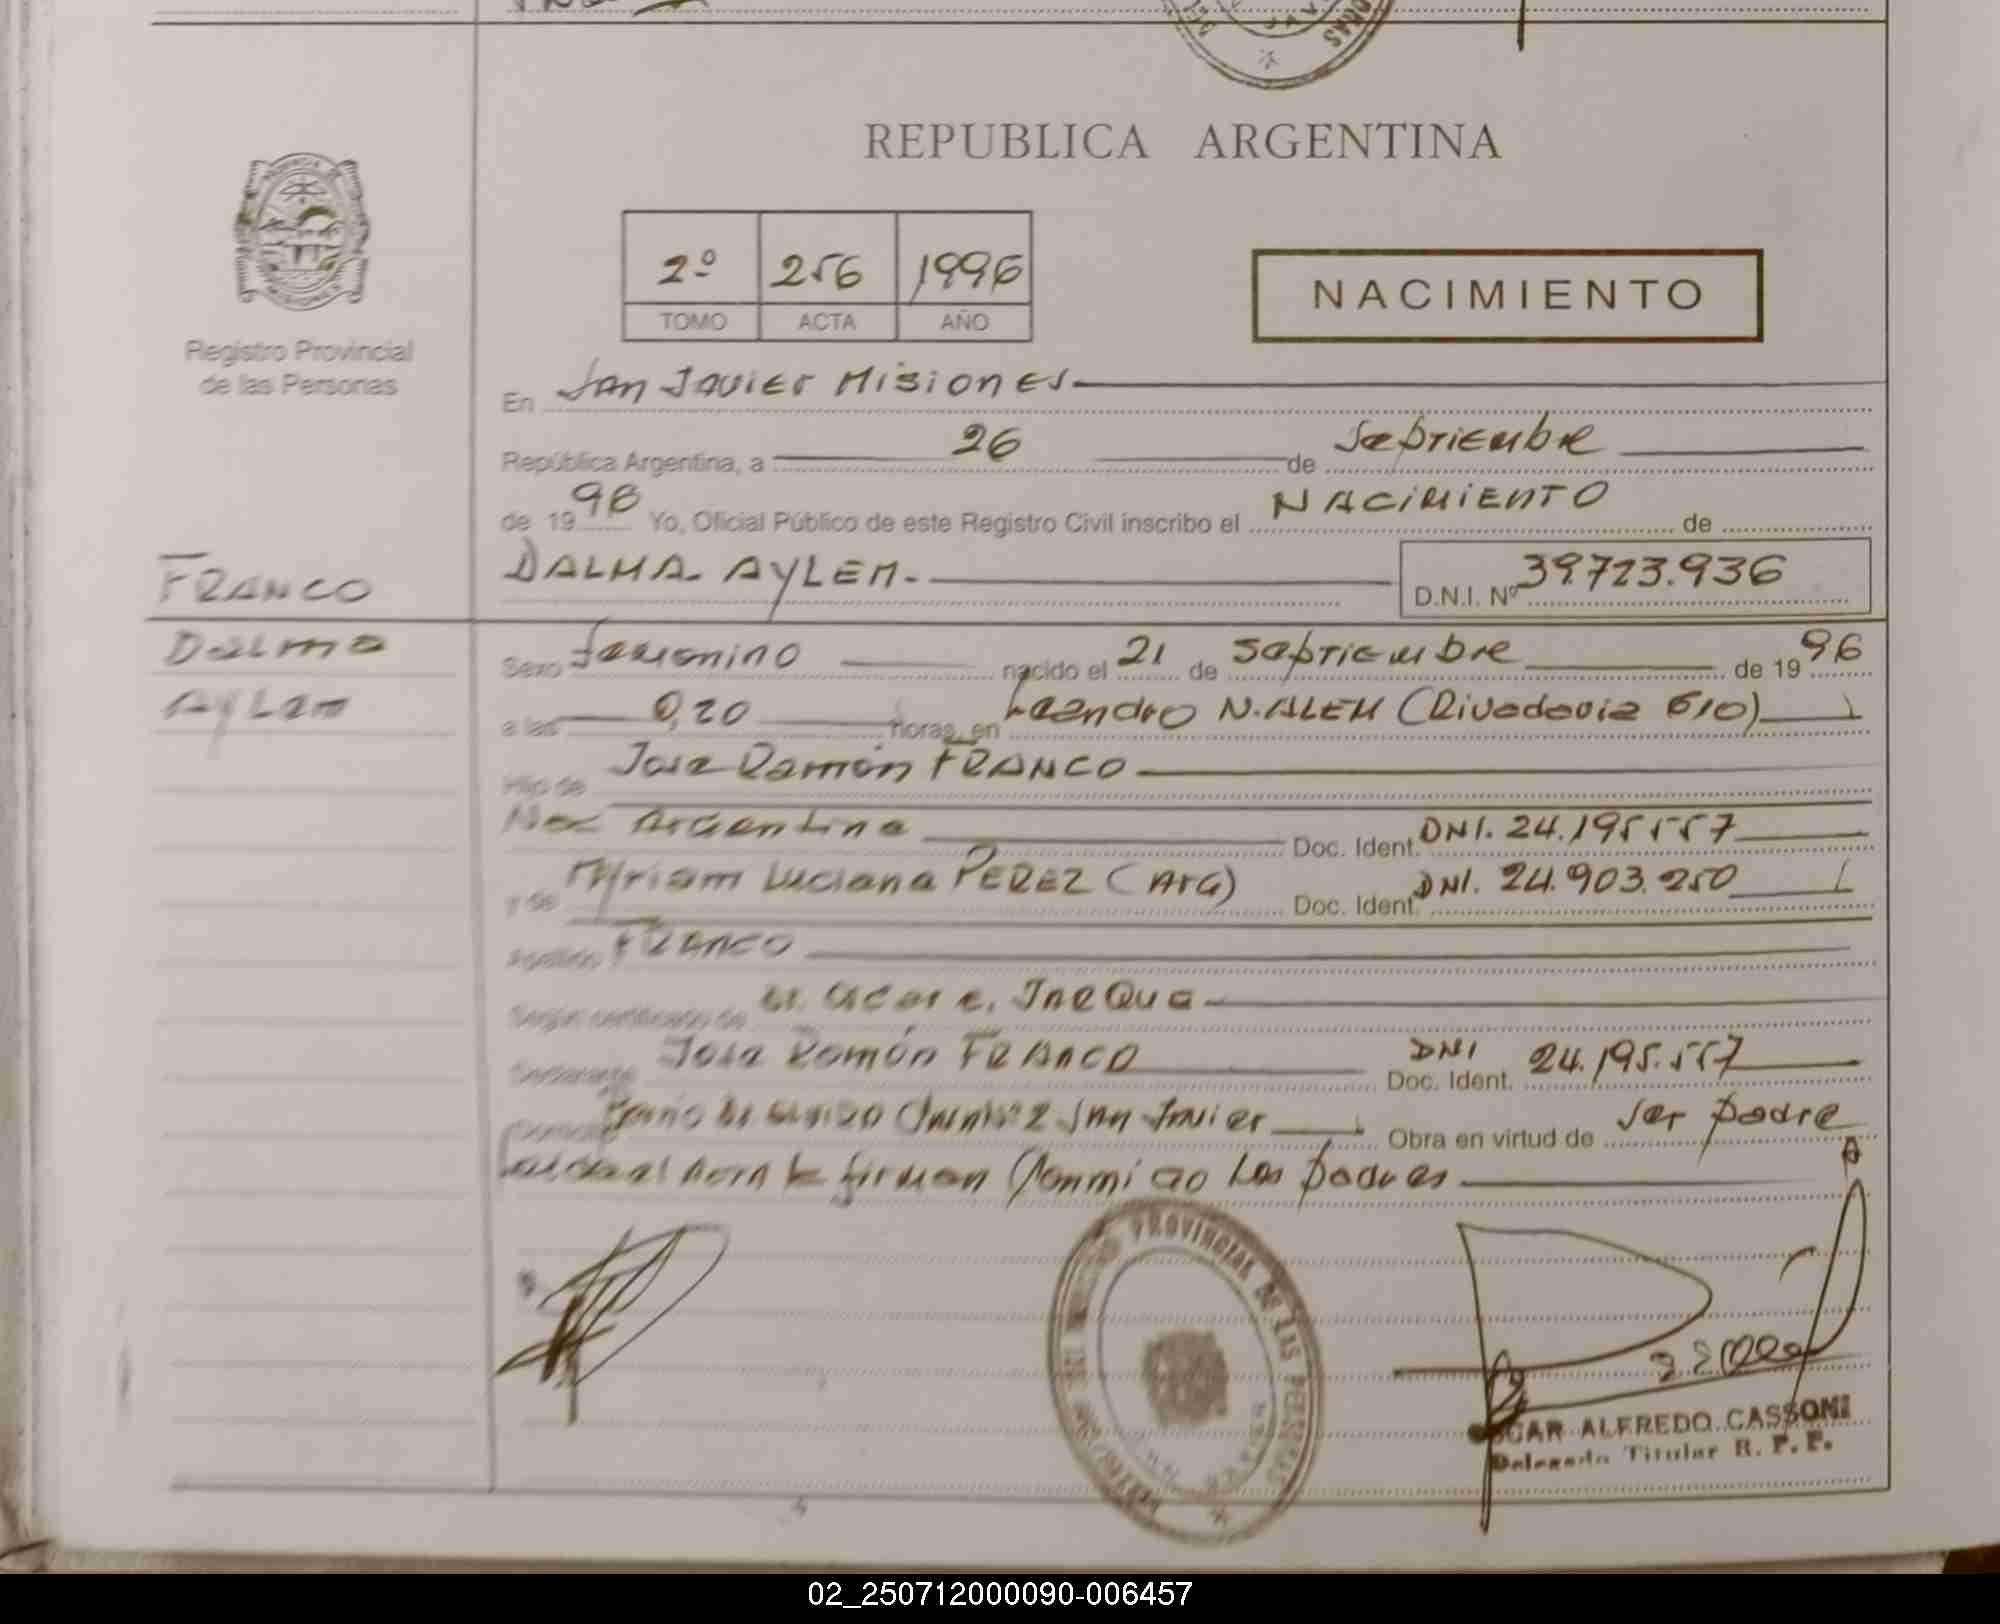 REPUBLICA ARGENTINA
2º 256 1996
TOMO ACTA AÑO
NACIMIENTO
Registro Provincial
de las Personas
En San Javier Misiones
República Argentina, a 26 de Septiembre
de 1996 Yo, Oficial Público de este Registro Civil inscribo el NACIMIENTO de
FRANCO
DALMA AYLEM.
D.N.I. Nº 39.723.936
Dalma
Aylem
Sexo femenino nacido el 21 de Septiembre de 1996
a las 0,20 horas, en Leandro N. ALEM (Rivadavia 610)
Hijo de José Ramón FRANCO
Nac Argentina Doc. Ident. DNI. 24.195.557
y de Myriam Luciana PEREZ (Arg) Doc. Ident. DNI. 24.903.250
Apellido FRANCO
Según certificado de
Declarante José Ramón FRANCO DNI Doc. Ident. 24.195.557
Domicilio San Javier Obra en virtud de ser padre
firman Conmigo los padres
PROVINCIAL DE LAS PERSONAS
OSCAR ALFREDO CASSONI
Delegado Titular R. P. P.
02_250712000090-006457